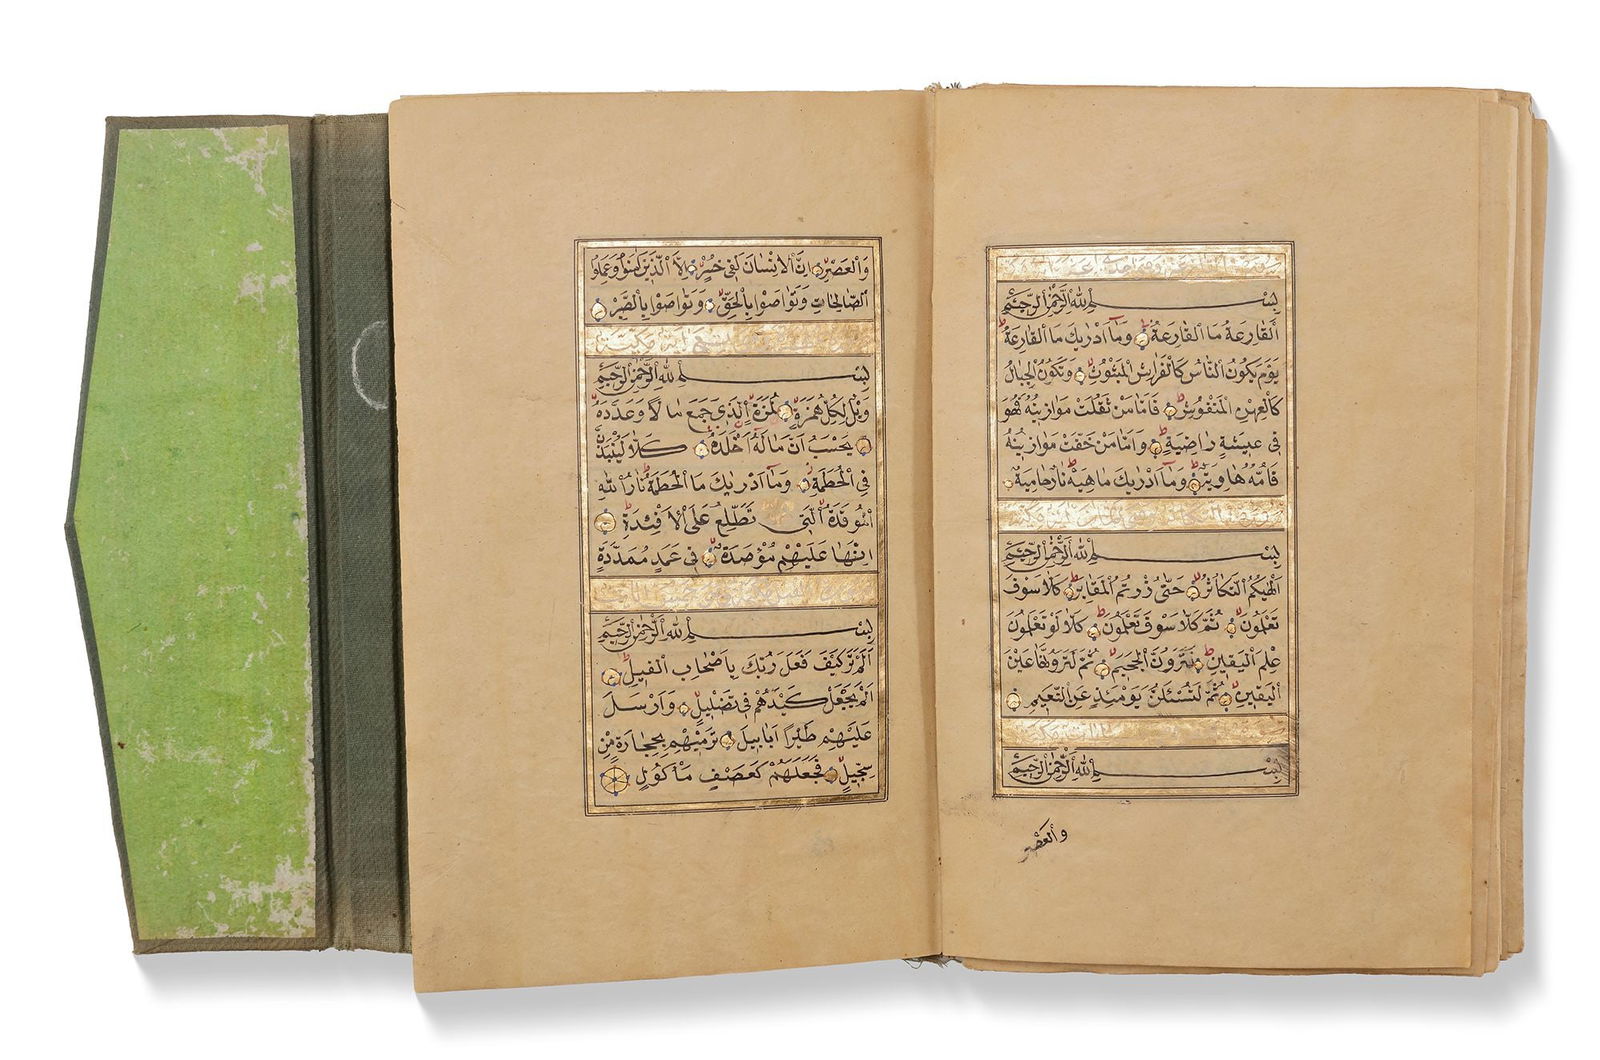 بِسْمِ اللهِ الرَّحْمٰنِ الرَّحِيمِ
اَلْقَارِعَةُ مَا الْقَارِعَةُ وَمَآ اَدْرٰيكَ مَا الْقَارِعَةُ
يَوْمَ يَكُونُ النَّاسُ كَالْفَرَاشِ الْمَبْثُوثِ وَتَكُونُ الْجِبَالُ
كَالْعِهْنِ الْمَنْفُوشِ فَاَمَّا مَنْ ثَقُلَتْ مَوَازِينُهُ فَهُوَ
فِى عِيشَةٍ رَاضِيَةٍ وَاَمَّا مَنْ خَفَّتْ مَوَازِينُهُ
فَاُمُّهُ هَاوِيَةٌ وَمَآ اَدْرٰيكَ مَا هِيَهْ نَارٌ حَامِيَةٌ
بِسْمِ اللهِ الرَّحْمٰنِ الرَّحِيمِ
اَلْهٰيكُمُ التَّكَاثُرُ حَتّٰى زُرْتُمُ الْمَقَابِرَ كَلَّا سَوْفَ
تَعْلَمُونَ ثُمَّ كَلَّا سَوْفَ تَعْلَمُونَ كَلَّا لَوْ تَعْلَمُونَ
عِلْمَ الْيَقِينِ لَتَرَوُنَّ الْجَحِيمَ ثُمَّ لَتَرَوُنَّهَا عَيْنَ
الْيَقِينِ ثُمَّ لَتُسْئَلُنَّ يَوْمَئِذٍ عَنِ النَّعِيمِ
بِسْمِ اللهِ الرَّحْمٰنِ الرَّحِيمِ
وَالْعَصْرِ
وَالْعَصْرِ اِنَّ الْاِنْسَانَ لَفِى خُسْرٍ اِلَّا الَّذِينَ اٰمَنُوا وَعَمِلُوا
الصَّالِحَاتِ وَتَوَاصَوْا بِالْحَقِّ وَتَوَاصَوْا بِالصَّبْرِ
تسع اية مكية
بِسْمِ اللهِ الرَّحْمٰنِ الرَّحِيمِ
وَيْلٌ لِكُلِّ هُمَزَةٍ لُمَزَةٍ اَلَّذِى جَمَعَ مَالًا وَعَدَّدَهُ
يَحْسَبُ اَنَّ مَالَهُ اَخْلَدَهُ كَلَّا لَيُنْبَذَنَّ
فِى الْحُطَمَةِ وَمَآ اَدْرٰيكَ مَا الْحُطَمَةُ نَارُ اللهِ
الْمُوقَدَةُ الَّتِى تَطَّلِعُ عَلَى الْاَفْئِدَةِ
اِنَّهَا عَلَيْهِمْ مُؤْصَدَةٌ فِى عَمَدٍ مُمَدَّدَةٍ
بِسْمِ اللهِ الرَّحْمٰنِ الرَّحِيمِ
اَلَمْ تَرَ كَيْفَ فَعَلَ رَبُّكَ بِاَصْحَابِ الْفِيلِ
اَلَمْ يَجْعَلْ كَيْدَهُمْ فِى تَضْلِيلٍ وَاَرْسَلَ
عَلَيْهِمْ طَيْرًا اَبَابِيلَ تَرْمِيهِمْ بِحِجَارَةٍ مِنْ
سِجِّيلٍ فَجَعَلَهُمْ كَعَصْفٍ مَأْكُولٍ